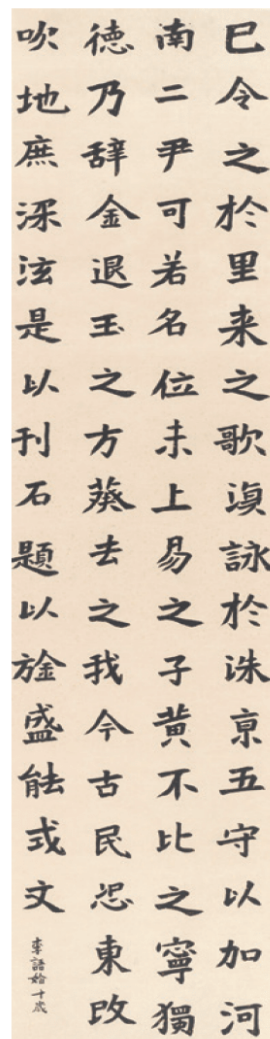 巳令之於里来之歌湏詠於洙京五守以加河
南二尹可若名位未上易之子黄不比之寧獨
德乃辞金退玉之方葵去之我今古民恐東改
吹地庶深泫是以刊石題以旌盛能式文
李語始十歲